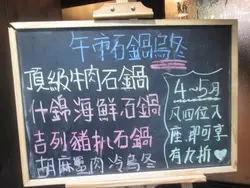 午市石鍋烏冬
頂級牛肉石鍋
什錦海鮮石鍋
吉列豬扒石鍋
胡麻蟹肉冷烏冬
4~5月
凡四位入
座,即可享
有九折